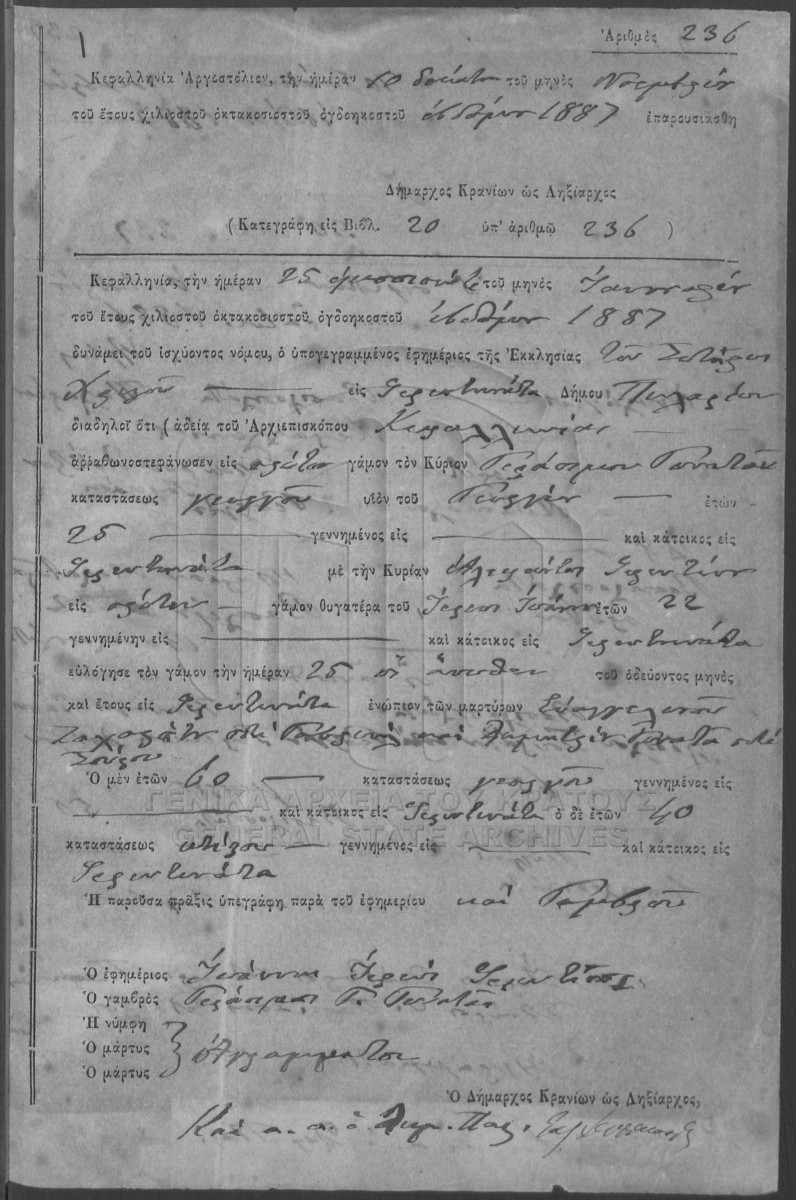 Ἀριθμὸς 236
1
Κεφαλληνία Ἀργοστόλιον, τὴν ἡμέραν 10 δεκάτην τοῦ μηνὸς Νοεμβρίου
τοῦ ἔτους χιλιοστοῦ ὀκτακοσιοστοῦ ὀγδοηκοστοῦ ἑβδόμου 1887 ἐπαρουσιάσθη
Δήμαρχος Κρανίων ὡς Ληξίαρχος
(Κατεγράφη εἰς Βιβλ. 20 ὑπ' ἀριθμῷ 236 )
Κεφαλληνία, τὴν ἡμέραν 25 τοῦ μηνὸς Ἰαννουαρίου
τοῦ ἔτους χιλιοστοῦ ὀκτακοσιοστοῦ ὀγδοηκοστοῦ ἑβδόμου 1887
δυνάμει τοῦ ἰσχύοντος νόμου, ὁ ὑπογεγραμμένος ἐφημέριος τῆς Ἐκκλησίας τοῦ Σωτῆρος
Χριστοῦ εἰς Φερεντινάτα Δήμου Πυλαρέων
διαδηλοῖ ὅτι ( ἀδείᾳ τοῦ Ἀρχιεπισκόπου Κεφαλληνίας
ἀῤῥαβωνοστεφάνωσεν εἰς πρῶτον γάμον τὸν Κύριον Γεράσιμον
καταστάσεως γεωργοῦ υἱὸν τοῦ Γεωργίου ἐτῶν
25 γεννημένος εἰς καὶ κάτοικος εἰς
Φερεντινάτα μὲ τὴν Κυρίαν
εἰς πρῶτον γάμον θυγατέρα τοῦ Ἱερέως Ἰωάννου ἐτῶν 22
γεννημένην εἰς καὶ κάτοικος εἰς Φερεντινάτα
εὐλόγησε τὸν γάμον τὴν ἡμέραν 25 ὡς ἄνωθεν τοῦ ὁδεύοντος μηνὸς
καὶ ἔτους εἰς Φερεντινάτα ἐνώπιον τῶν μαρτύρων Εὐαγγελινοῦ
καὶ Δημητρίου
Ὁ μὲν ἐτῶν 60 καταστάσεως γεωργοῦ γεννημένος εἰς
καὶ κάτοικος εἰς Φερεντινάτα ὁ δὲ ἐτῶν 40
καταστάσεως κτίστου γεννημένος εἰς καὶ κάτοικος εἰς
Φερεντινάτα
Ἡ παροῦσα πρᾶξις ὑπεγράφη παρὰ τοῦ ἐφημερίου καὶ Γαμβροῦ
Ὁ ἐφημέριος Ἰωάννης Ἱερεὺς Φερεντῖνος
Ὁ γαμβρὸς Γεράσιμος Γ.
Ἡ νύμφη
Ὁ μάρτυς ἀγράμματοι
Ὁ μάρτυς
Ὁ Δήμαρχος Κρανίων ὡς Ληξίαρχος,
ΓΕΝΙΚΑ ΑΡΧΕΙΑ ΤΟΥ ΚΡΑΤΟΥΣ
GENERAL STATE ARCHIVES